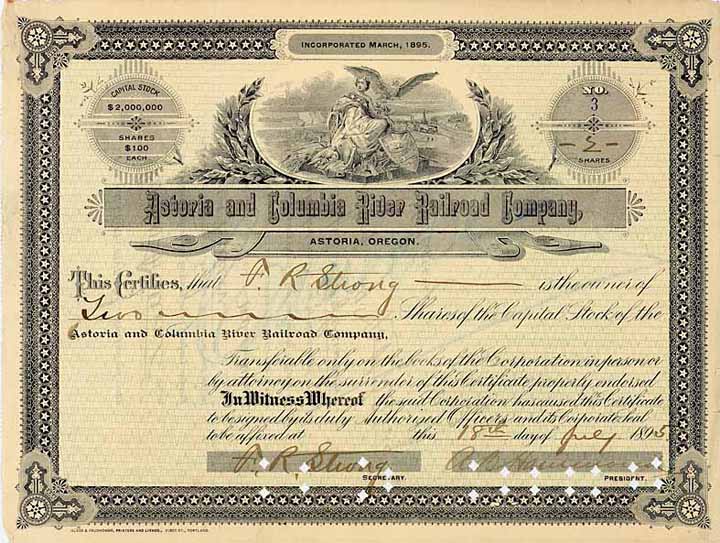 INCORPORATED MARCH, 1895.
CAPITAL STOCK
$2,000,000
SHARES
$100
EACH
NO.
3
2
SHARES
Astoria and Columbia River Railroad Company,
ASTORIA, OREGON.
This Certifies, that F. R. Strong is the owner of
Two Shares of the Capital Stock of the
Astoria and Columbia River Railroad Company,
Transferable only on the books of the Corporation in person or
by attorney on the surrender of this Certificate properly endorsed
In Witness Whereof the said Corporation has caused this Certificate
to be signed by its duly Authorized Officers and its Corporate Seal
to be affixed at this 18th day of July 1895
F. R. Strong
SECRETARY. PRESIDENT.
PRINTERS AND LITHOS., FIRST ST., PORTLAND.